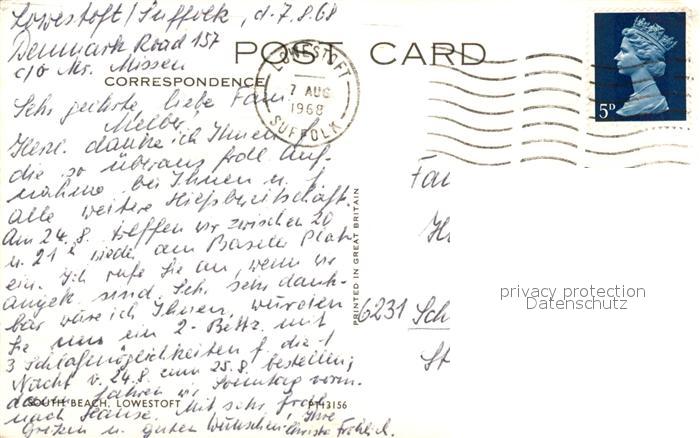 Lowestoft/Suffolk, d. 7.8.68
Denmark Road 157
c/o Mr. Missen
POST CARD
CORRESPONDENCE
LOWESTOFT
7 AUG
1968
SUFFOLK
5D
Sehr geehrte, liebe Frau
Melber,
Herzl. danke ich Ihnen f.
die so überaus frdl. Auf-
nahme bei Ihnen u. f.
alle weitere Hilfsbereitschaft.
Am 24.8. treffen wir zwischen 20
u. 21 h wieder am Baseler Platz
ein. Ich rufe Sie an, wenn wir
angek. sind. Sehr, sehr dank-
bar wäre ich Ihnen, würden
Sie uns ein 2-Bettz. mit
3 Schlafmöglichkeiten f. die 1
Nacht v. 24.8. zum 25.8. bestellen;
dann fahren wir Sonntag vorm.
nach Hause. Mit sehr frohen
Grüßen u. guten Wünschen Ihre
Christa Fröhlich.
SOUTH BEACH, LOWESTOFT
PT13156
PRINTED IN GREAT BRITAIN
6231 Sch
privacy protection
Datenschutz